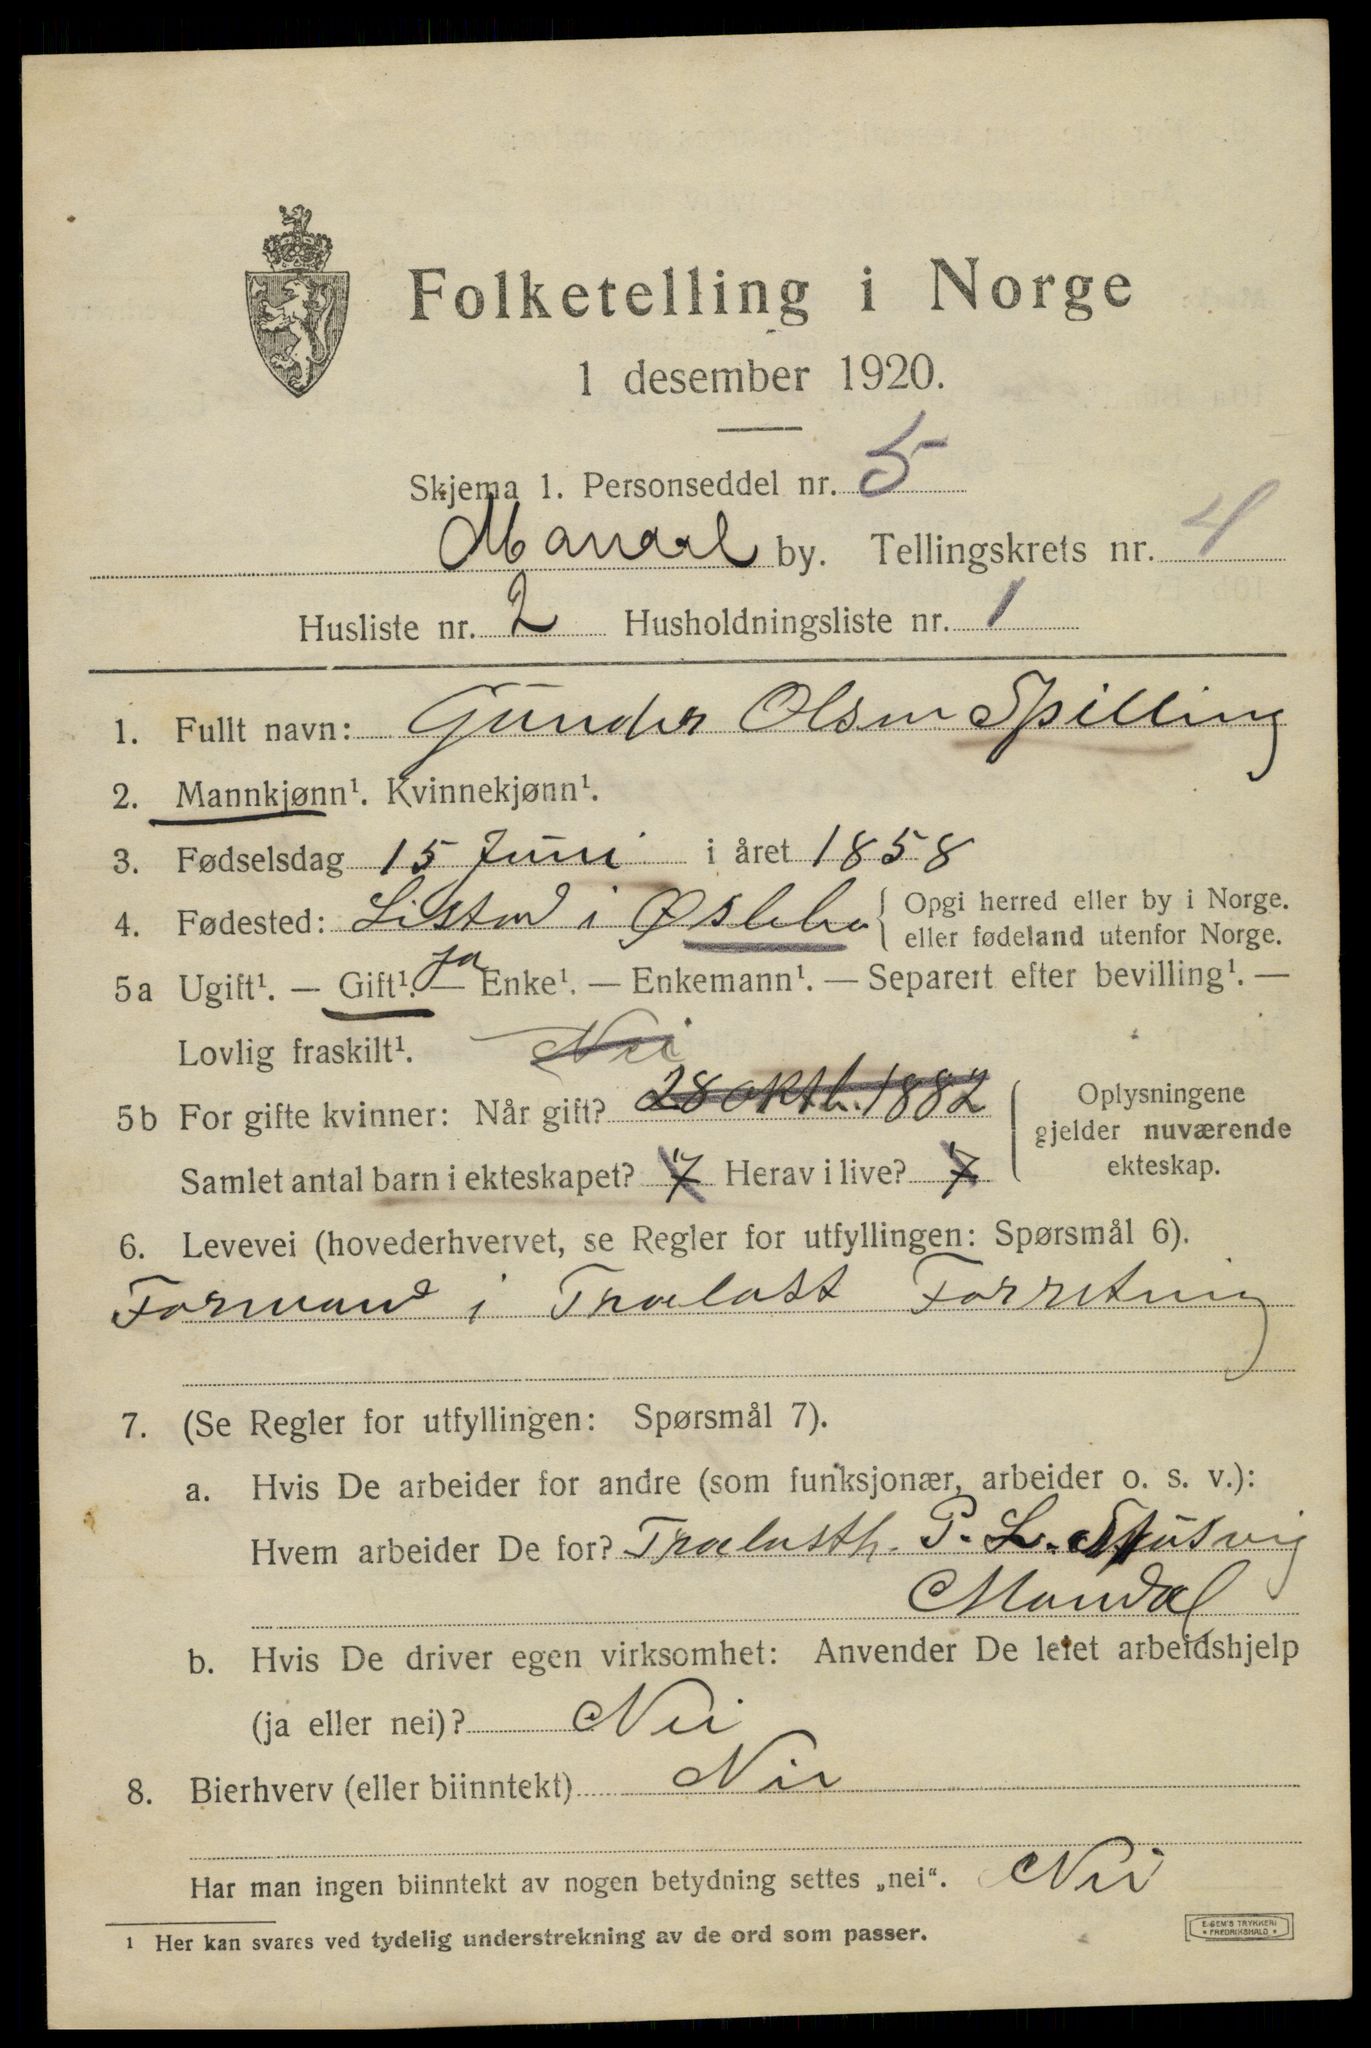 Folketelling i Norge
1 desember 1920.
Skjema 1. Personseddel nr. 5
Mandal by. Tellingskrets nr. 4
Husliste nr. 2 Husholdningsliste nr. 1
1. Fullt navn: Gunder Olsen Spilling
2. Mannkjønn¹. Kvinnekjønn¹.
3. Fødselsdag 15 Juni i året 1858
4. Fødested: Listad i Øslebø { Opgi herred eller by i Norge.
eller fødeland utenfor Norge.
ja
5a Ugift¹. — Gift¹. — Enke¹. — Enkemann¹. — Separert efter bevilling¹. —
Lovlig fraskilt¹. Nei
5b For gifte kvinner: Når gift? 28 oktb. 1882
Oplysningene
gjelder nuværende
ekteskap.
Samlet antal barn i ekteskapet? 7 Herav i live? 7
6. Levevei (hovederhvervet, se Regler for utfyllingen: Spørsmål 6).
Formand i Trælast Forretning
7. (Se Regler for utfyllingen: Spørsmål 7).
a. Hvis De arbeider for andre (som funksjonær, arbeider o. s. v.):
Hvem arbeider De for? Trælasth. P. L.
Mandal
b. Hvis De driver egen virksomhet: Anvender De leiet arbeidshjelp
(ja eller nei)? Nei
8. Bierhverv (eller biinntekt) Nei
Har man ingen biinntekt av nogen betydning settes „nei“. Nei
¹ Her kan svares ved tydelig understrekning av de ord som passer.
E. SEM'S TRYKKERI
* FREDRIKSHALD *